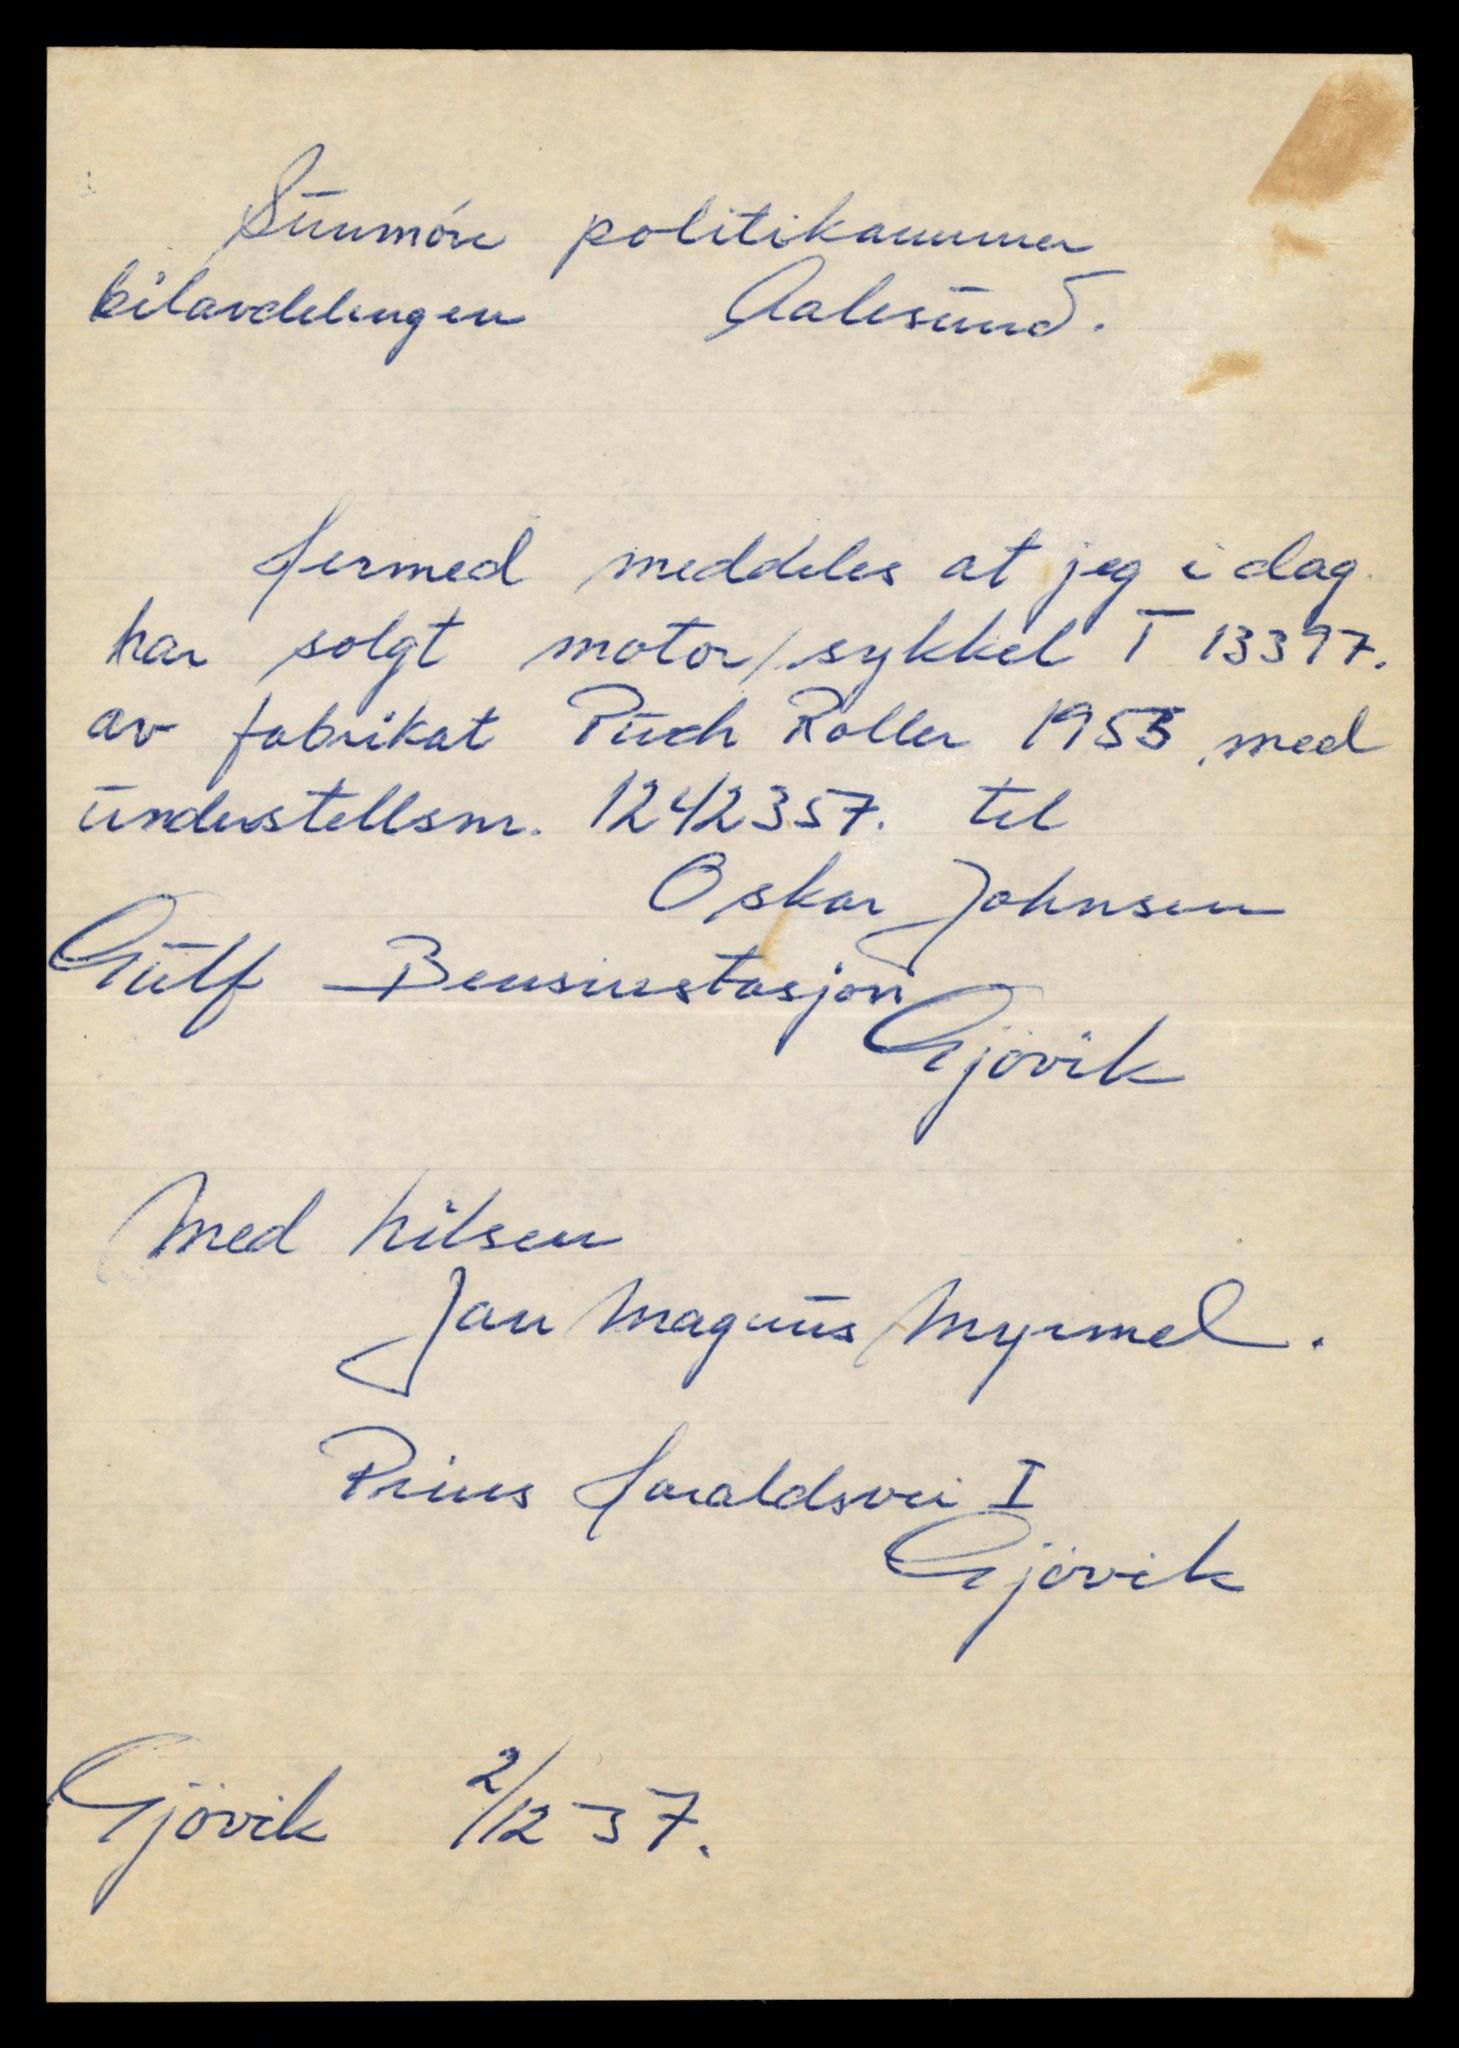 Sunnmöre politikammer
bilavdelingen Aalesund.
Hermed meddeles at jeg i dag
har solgt motor/sykkel T 13397.
av fabrikat Puch Roller 1955 med
understellsnr. 1242357. til
Oskar Johnsen
Gulf Bensinstasjon
Gjövik
Med hilsen
Jan Magnus Myrmel.
Prins Haraldsvei I
Gjövik
Gjövik 2/12-57.